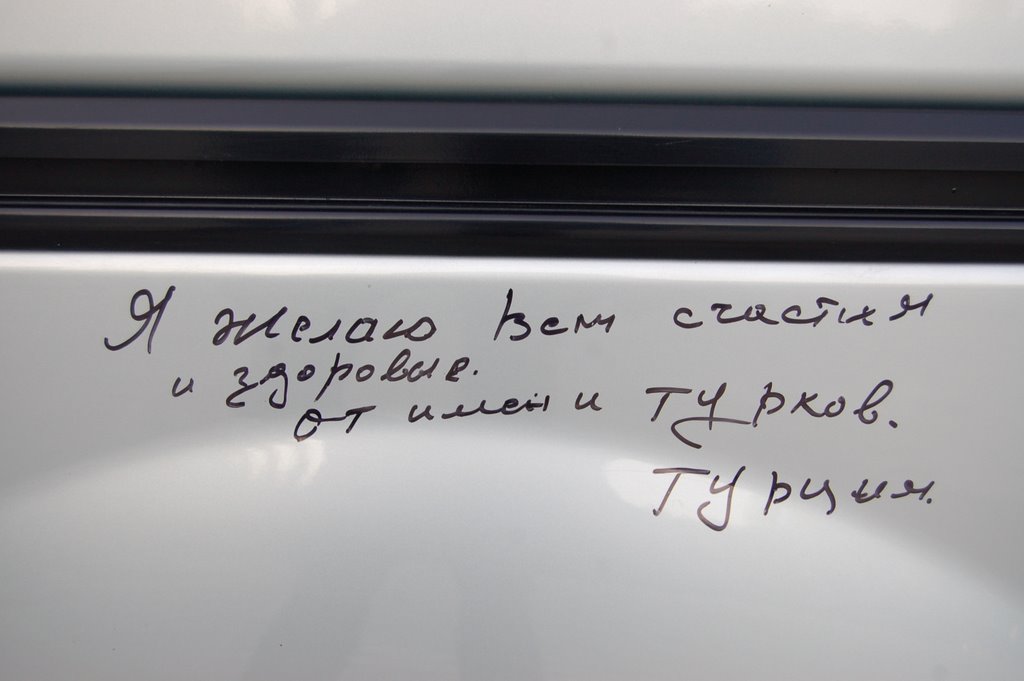 Я желаю Всем счастья
и здоровье.
от имени турков.
Турция.